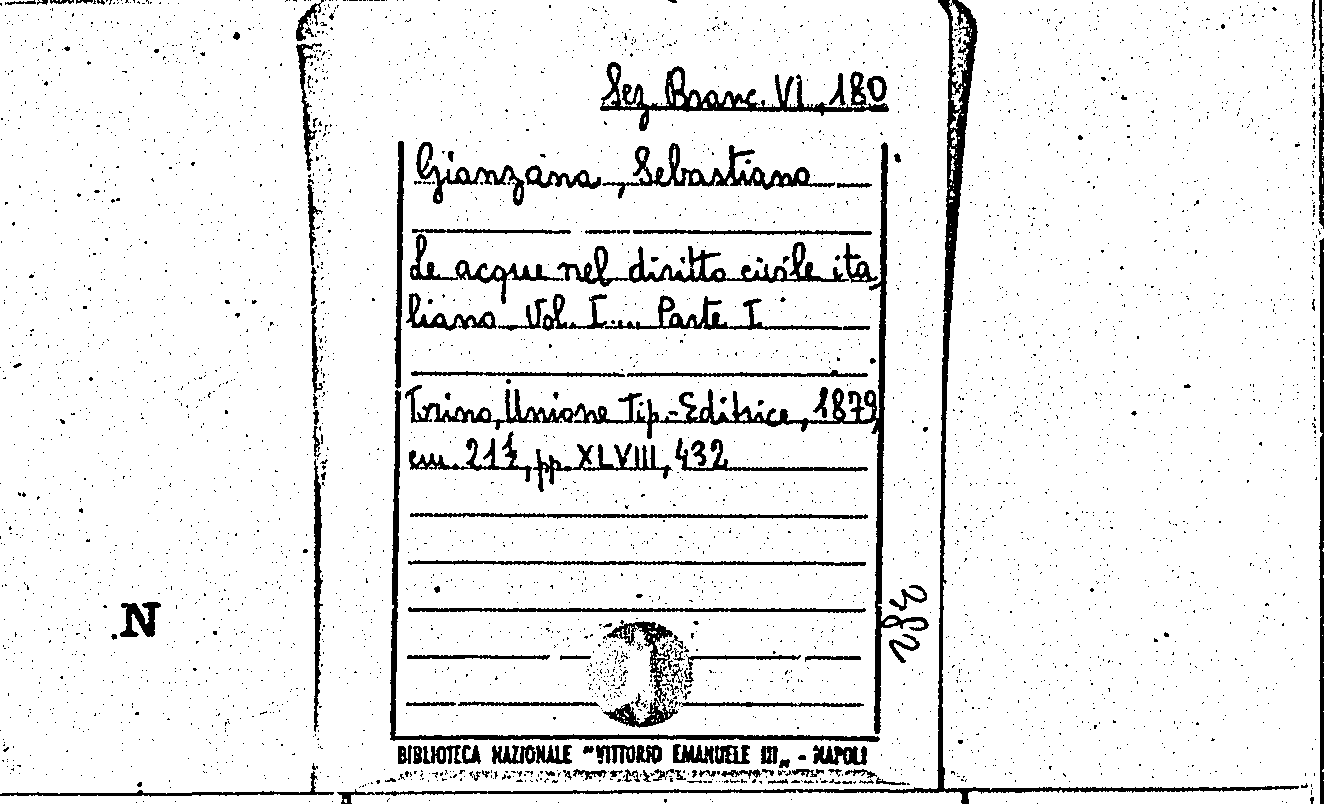 Sez. Branc. VI, 180
Gianzana, Sebastiano
Le acque nel diritto civile ita
liano. Vol. I.... Parte I.
Torino, Unione Tip.-Editrice, 1879,
cm. 21½, pp. XLVIII, 432
N
BIBLIOTECA NAZIONALE "VITTORIO EMANUELE III„ - NAPOLI